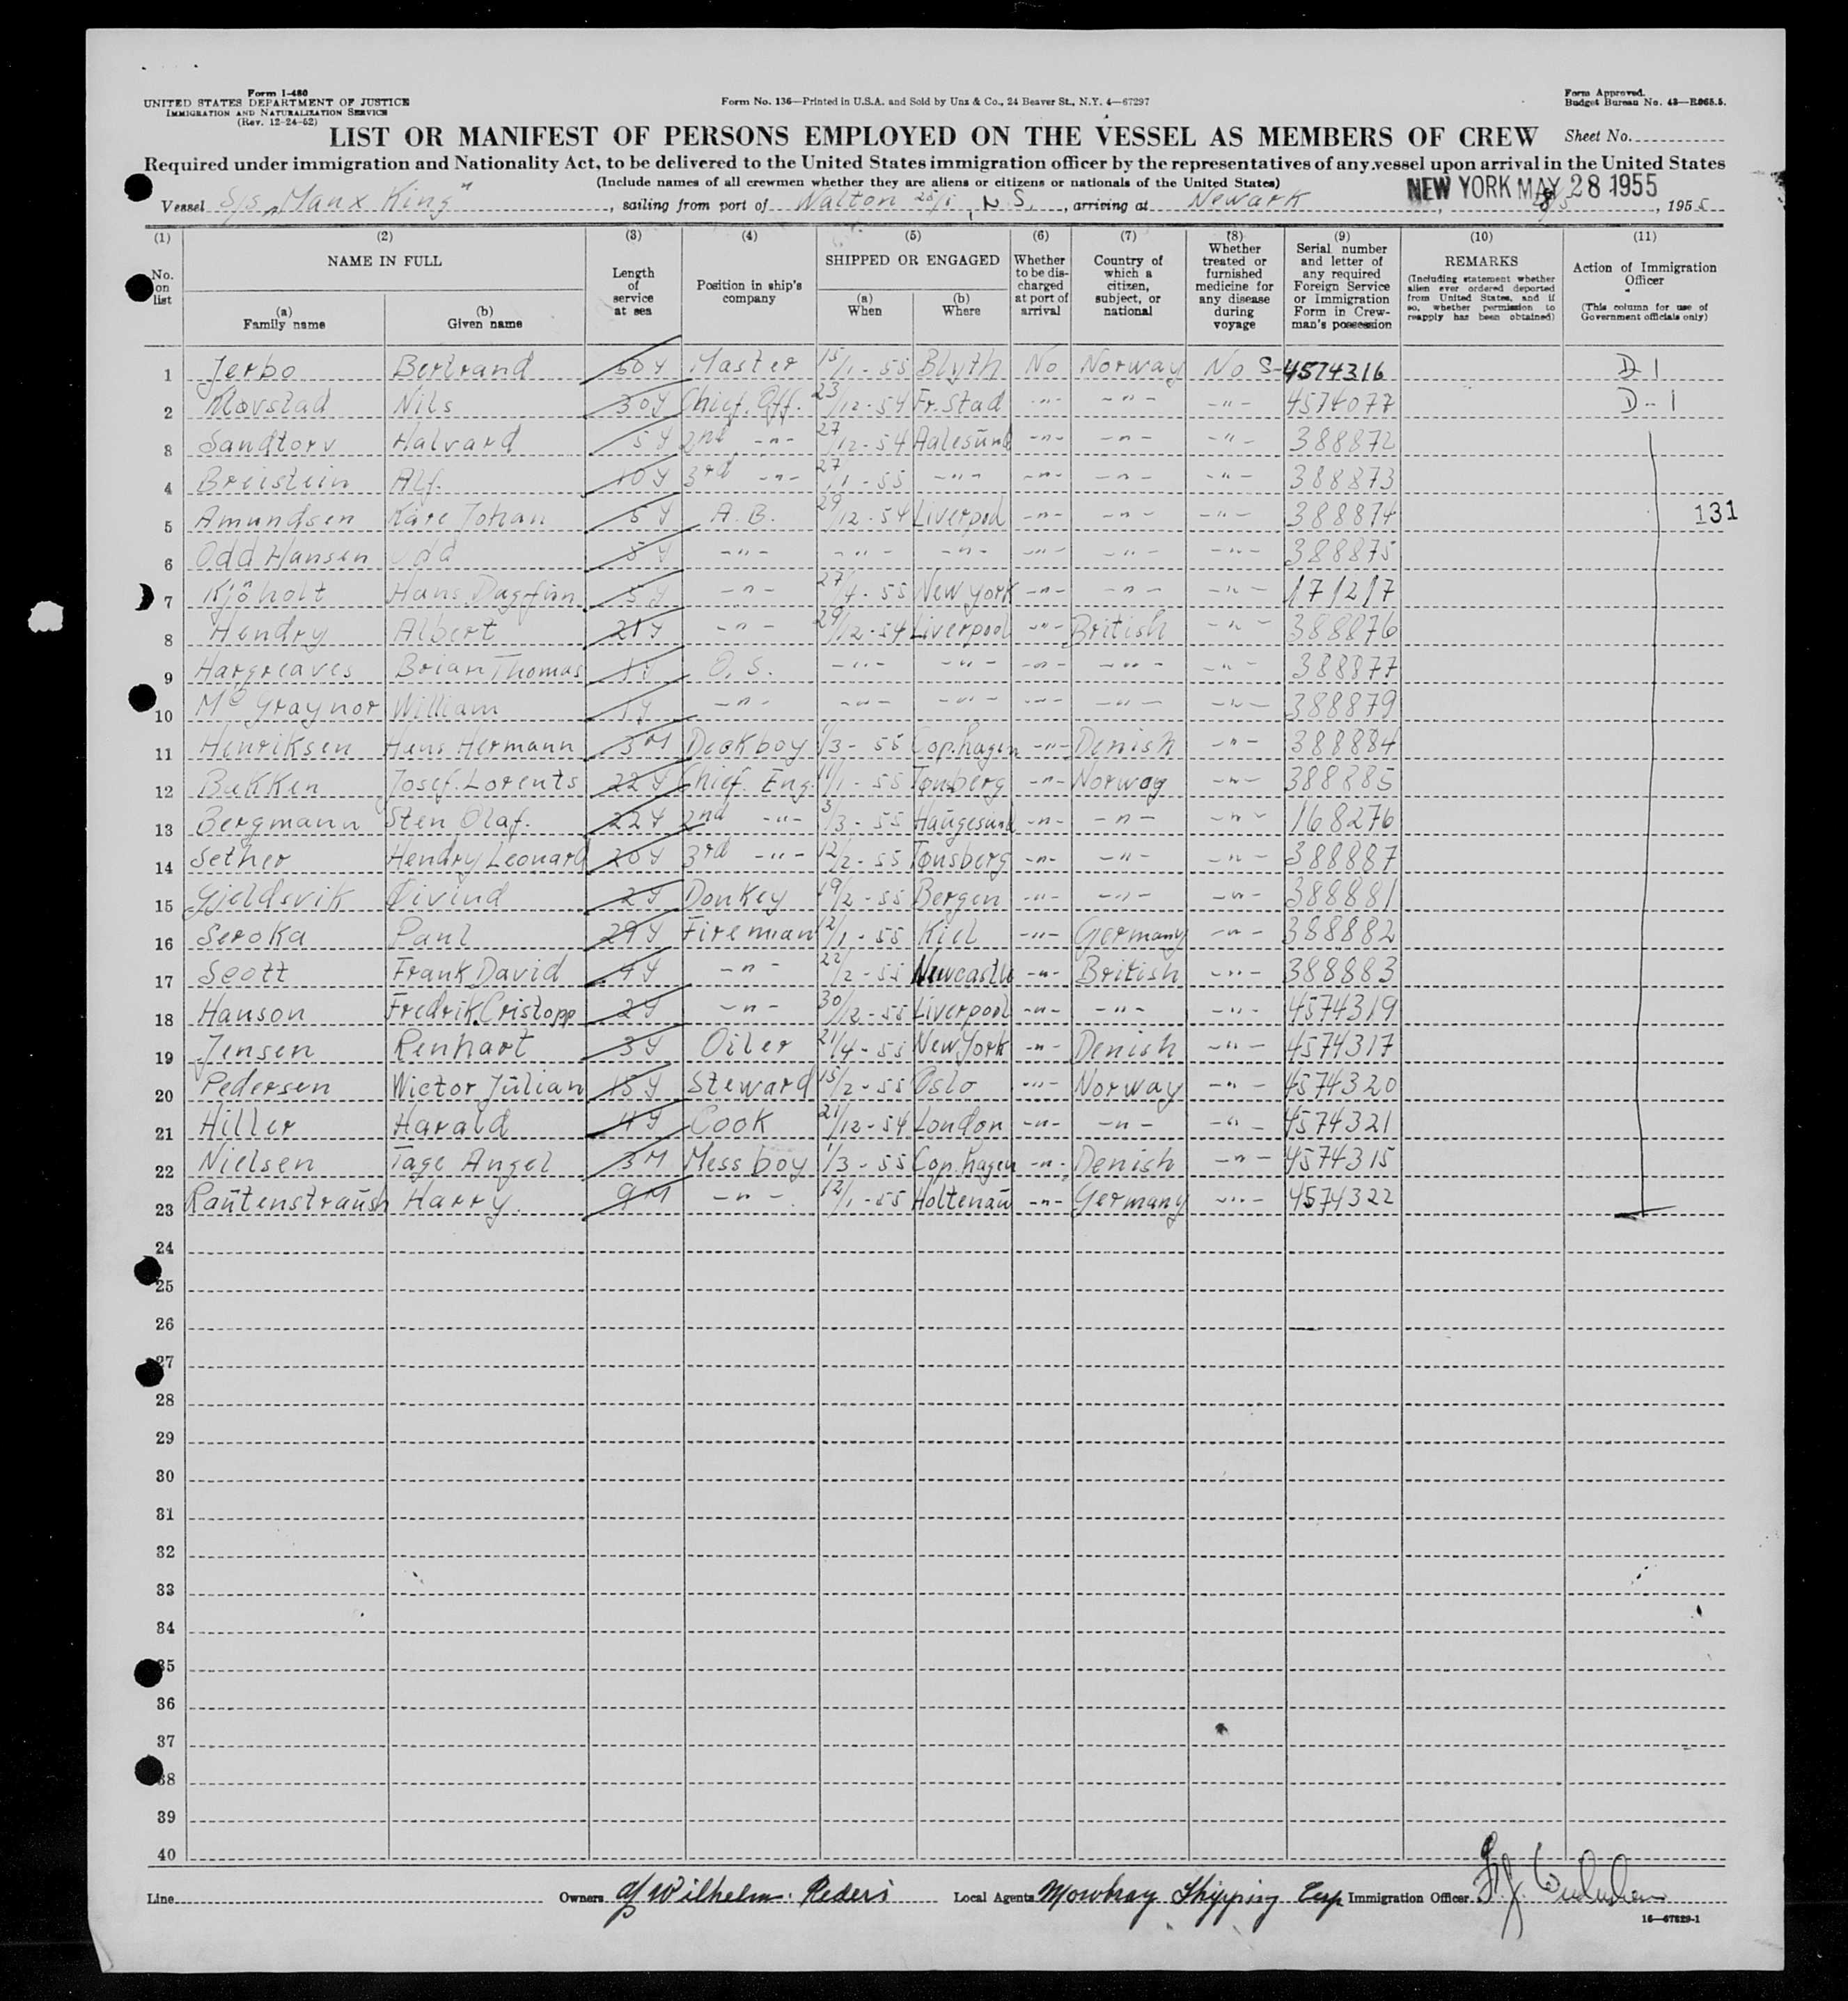 Form I-480
UNITED STATES DEPARTMENT OF JUSTICE
IMMIGRATION AND NATURALIZATION SERVICE
(Rev. 12-24-52)
Form No. 136—Printed in U.S.A. and Sold by Unz & Co., 24 Beaver St., N.Y. 4—67297
Form Approved.
Budget Bureau No. 43—R065.5.
LIST OR MANIFEST OF PERSONS EMPLOYED ON THE VESSEL AS MEMBERS OF CREW Sheet No.
Required under immigration and Nationality Act, to be delivered to the United States immigration officer by the representatives of any vessel upon arrival in the United States
(Include names of all crewmen whether they are aliens or citizens or nationals of the United States)
NEW YORK MAY 28 1955
Vessel S/s „Manx King", sailing from port of Walton N.S., arriving at Newark, 1955
(1) (2) (3) (4) (5) (6) (7) (8) (9) (10) (11)
No. on list
NAME IN FULL
(a) Family name
(b) Given name
Length of service at sea
Position in ship's company
SHIPPED OR ENGAGED
(a) When
(b) Where
Whether to be discharged at port of arrival
Country of which a citizen, subject, or national
Whether treated or furnished medicine for any disease during voyage
Serial number and letter of any required Foreign Service or Immigration Form in Crewman's possession
REMARKS
(Including statement whether alien ever ordered deported from United States, and if so, whether permission to reapply has been obtained)
Action of Immigration Officer
(This column for use of Government officials only)
1 Jerbo Bertrand 50 y Master 15/1-55 Blyth No Norway No S-4574316 D-1
2 Movstad Nils 30 y Chief. Off. 23/12-54 Fr.stad -"- -"- -"- 4574077 D-1
3 Sandtorv Halvard 5 y 2nd -"- 27/12-54 Aalesund -"- -"- -"- 388872
4 Breistein Alf. 10 y 3rd -"- 27/1-55 -"- -"- -"- -"- 388873
5 Amundsen Kåre Johan 5 y A.B. 29/12-54 Liverpool -"- -"- -"- 388874 131
6 Odd Hansen Odd 5 y -"- -"- -"- -"- -"- -"- 388875
7 Kjöholt Hans Dagfinn 5 y -"- 27/4-55 New York -"- -"- -"- 171217
8 Hendry Albert 21 y -"- 29/12-54 Liverpool -"- British -"- 388876
9 Hargreaves Brian Thomas 1 y O.S. -"- -"- -"- -"- -"- 388877
10 Mc Graynor William 1 y -"- -"- -"- -"- -"- -"- 388879
11 Henriksen Hans Hermann 3 M Deckboy 1/3-55 Cop.hagen -"- Denish -"- 388884
12 Bakken Josef. Lorents 22 y Chief. Eng. 11/1-55 Tønberg -"- Norway -"- 388885
13 Bergmann Sten Olaf. 22 y 2nd -"- 3/3-55 Haugesund -"- -"- -"- 168276
14 Sether Hendry Leonard 20 y 3rd -"- 12/2-55 Tønsberg -"- -"- -"- 388887
15 Gjeldsvik Øivind 2 y Donkey 19/2-55 Bergen -"- -"- -"- 388881
16 Seroka Paul 29 y Fireman 12/1-55 Kiel -"- Germany -"- 388882
17 Scott Frank David 4 y -"- 22/2-55 Newcastle -"- British -"- 388883
18 Hanson Fredrik.Cristopp 2 y -"- 30/12-55 Liverpool -"- -"- -"- 4574319
19 Jensen Renhart 3 y Oiler 21/4-55 New York -"- Denish -"- 4574317
20 Pedersen Wictor Julian 15 y Steward 15/2-55 Oslo -"- Norway -"- 4574320
21 Hiller Harald 4 y Cook 21/12-54 London -"- -"- -"- 4574321
22 Nielsen Tage Angel 3 M Mess boy 1/3-55 Cop.hagen -"- Denish -"- 4574315
23 Rautenstraush Harry. 9 M -"- 12/1-55 Holtenau -"- Germany -"- 4574322
24
25
26
27
28
29
30
31
32
33
34
35
36
37
38
39
40
Line Owners Wilhelm. Rederi Local Agents Mowbray Shipping Corp. Immigration Officer
16—67829-1